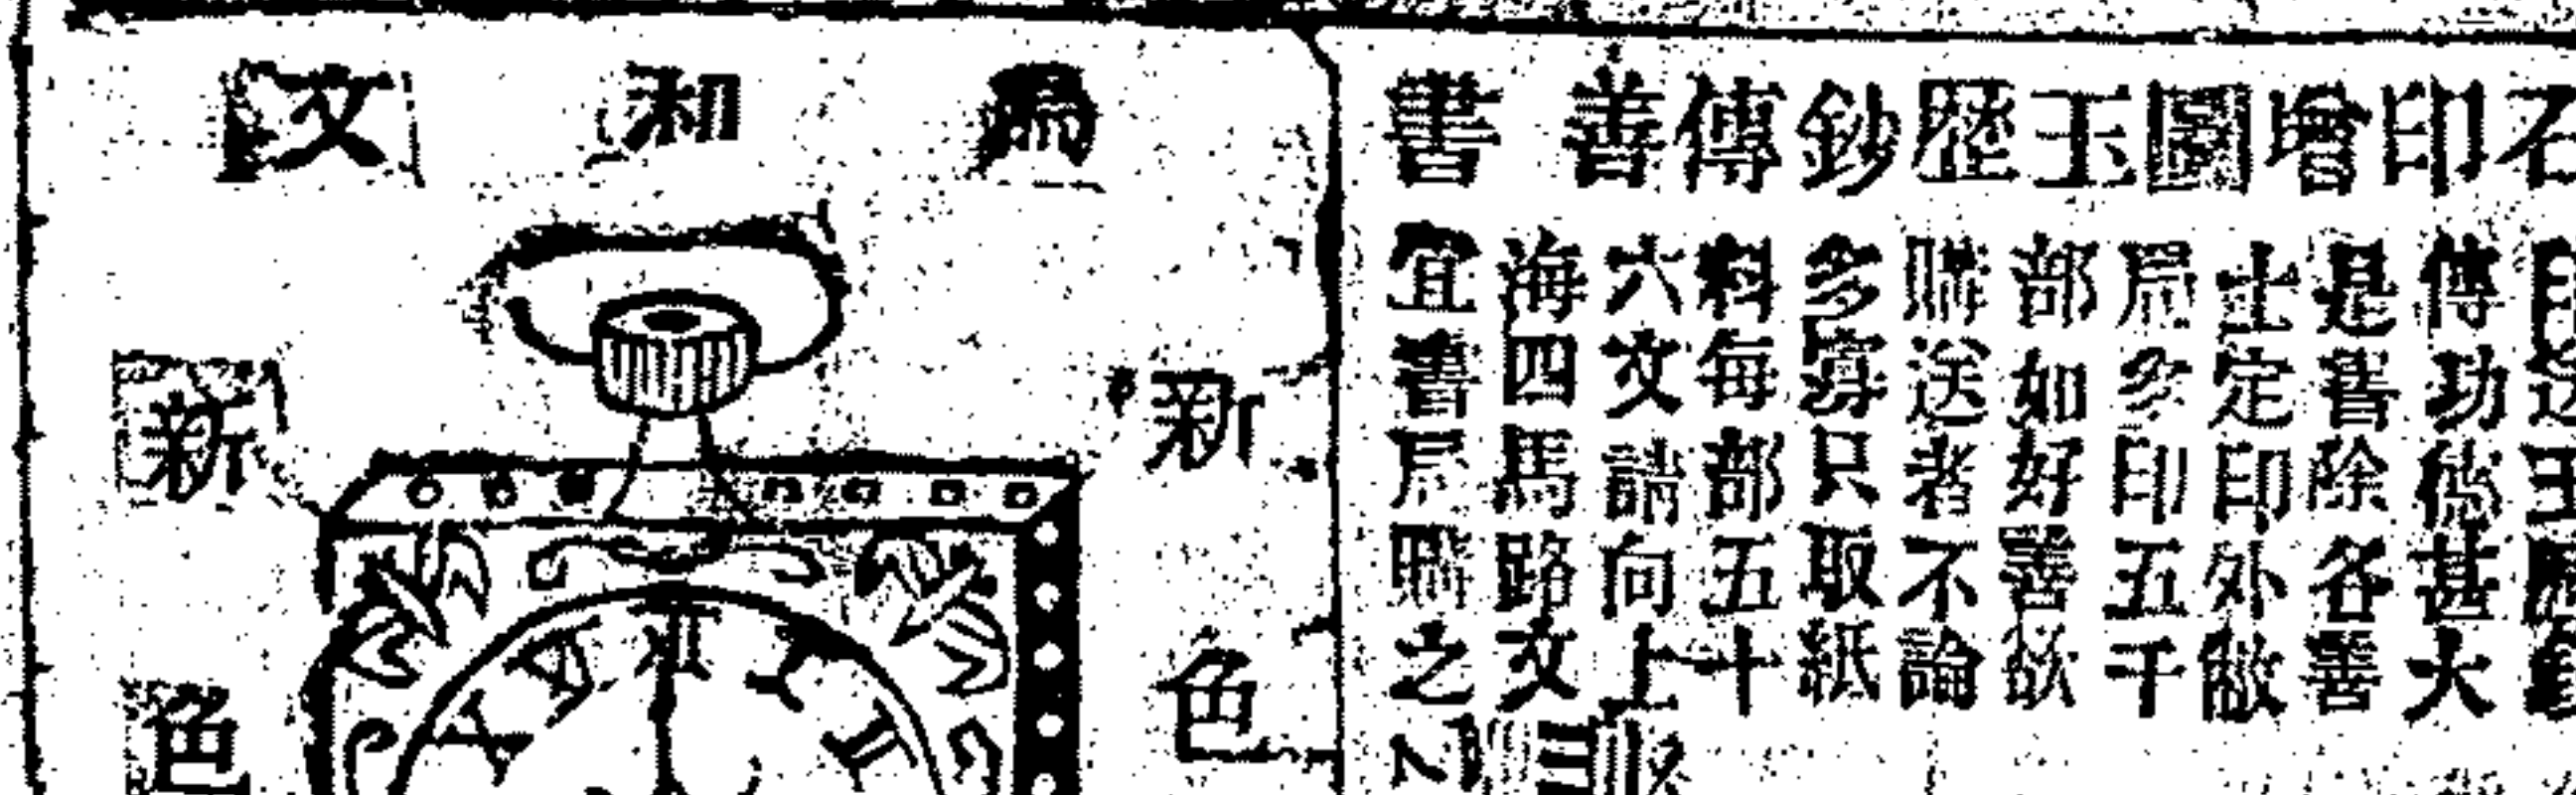 石印增圖玉歷鈔傳善書
印送玉歷鈔
傳功德甚大
是書除各善
士定印外敝
局多印五千
部如好善欲
購送者不論
多寡只取紙
料每部五十
六文請向上
海四馬路文
宜書局購之
和文
新色
新色